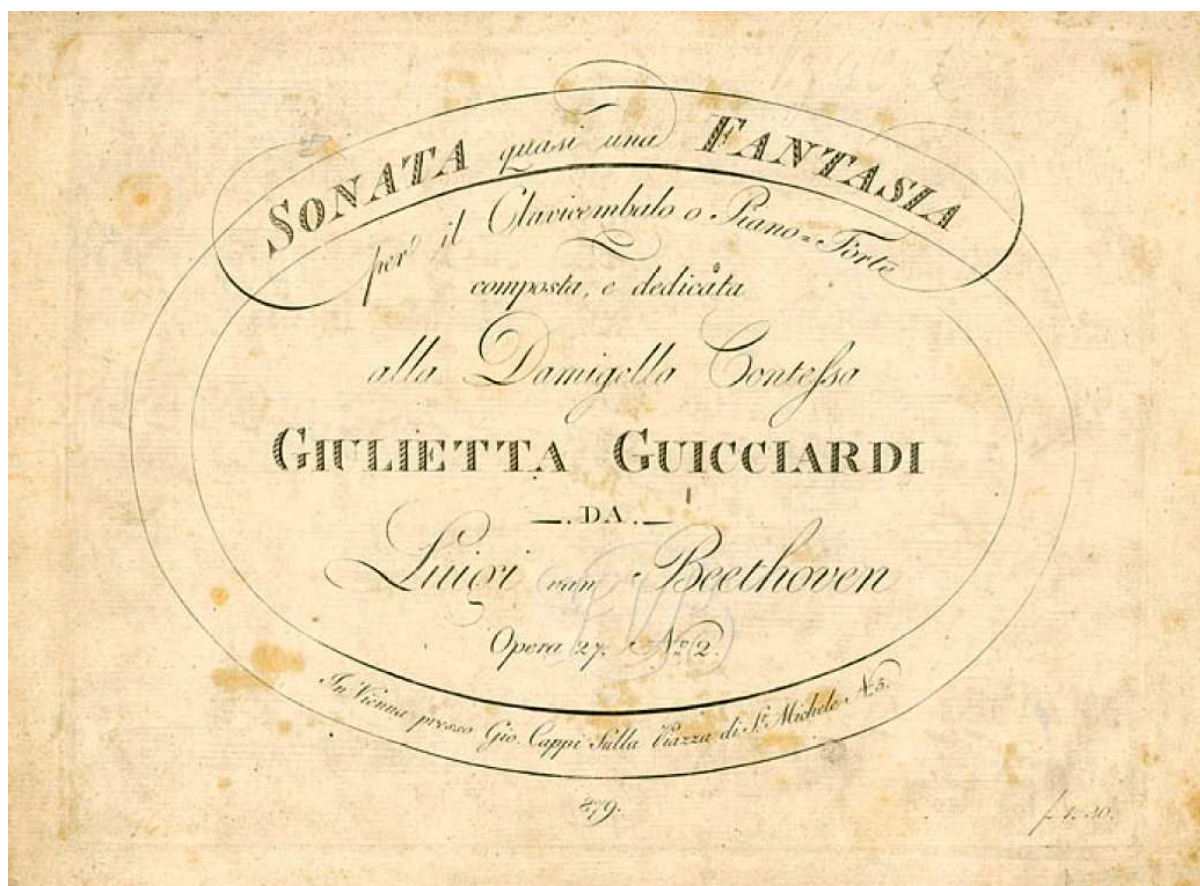 SONATA quasi una FANTASIA
per il Clavicembalo o Piano=Forte
composta, e dedicata
alla Damigella Contessa
GIULIETTA GUICCIARDI
—. DA .—
Luigi van Beethoven
Opera 27. No 2.
In Vienna presso Gio. Cappi Sulla Piazza di St. Michele No 5.
879.
f 1.30.